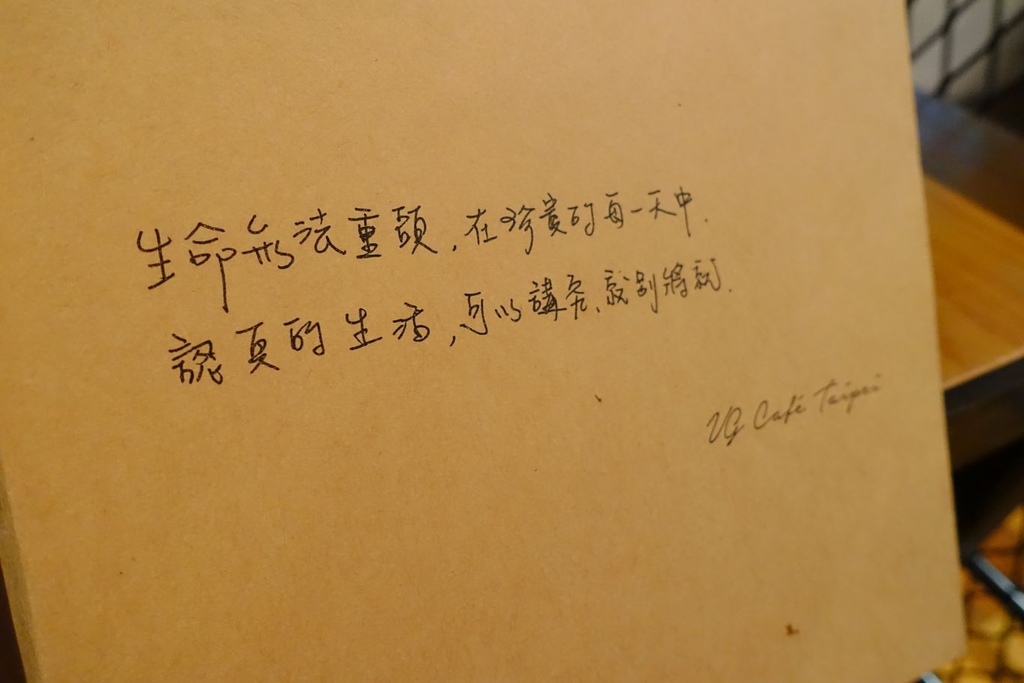 生命無法重頭，在珍貴的每一天中．
認真的生活，可以講究、就別將就．
VG Café Taipei